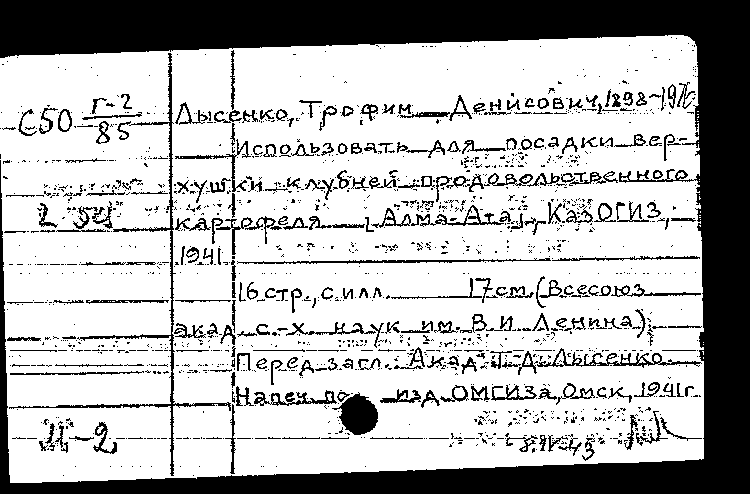 С50 Г-2 Лысенко, Трофим Денисович, 1898-1976
85
Использовать для посадки вер-
хушки клубней продовольственного
картофеля [Алма-Ата], КазОГИЗ,
1941
16 стр., с илл. 17 см. (Всесоюз
акад с.-х. наук им. В. И Ленина)
Перед загл.: Акад. Т. Д. Лысенко.
Напеч. по изд. ОМГИЗа, Омск, 1941г
8.IV-43